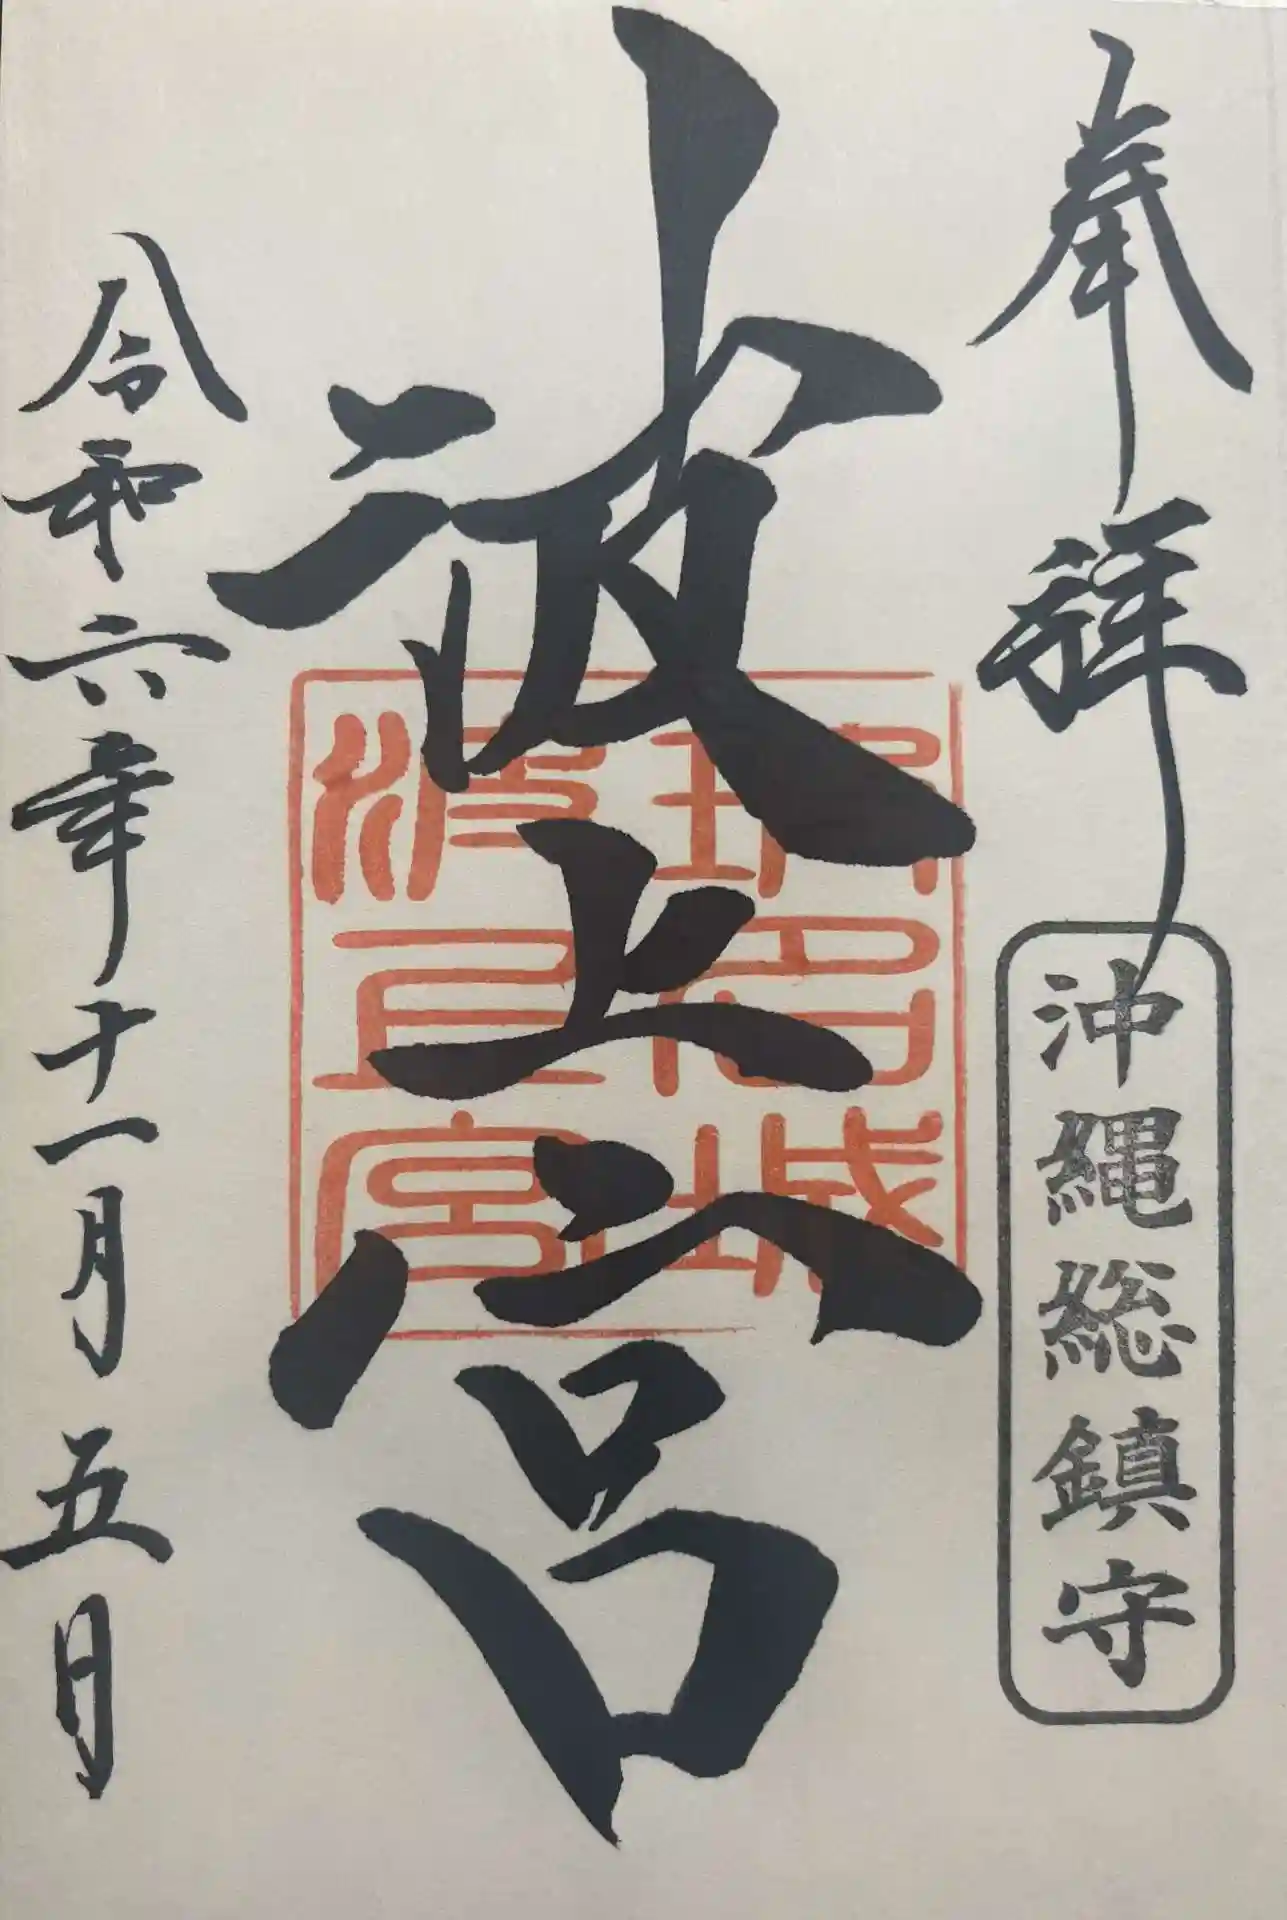 奉拝
沖縄総鎮守
波上宮
琉球
波上宮
令和六年十一月五日